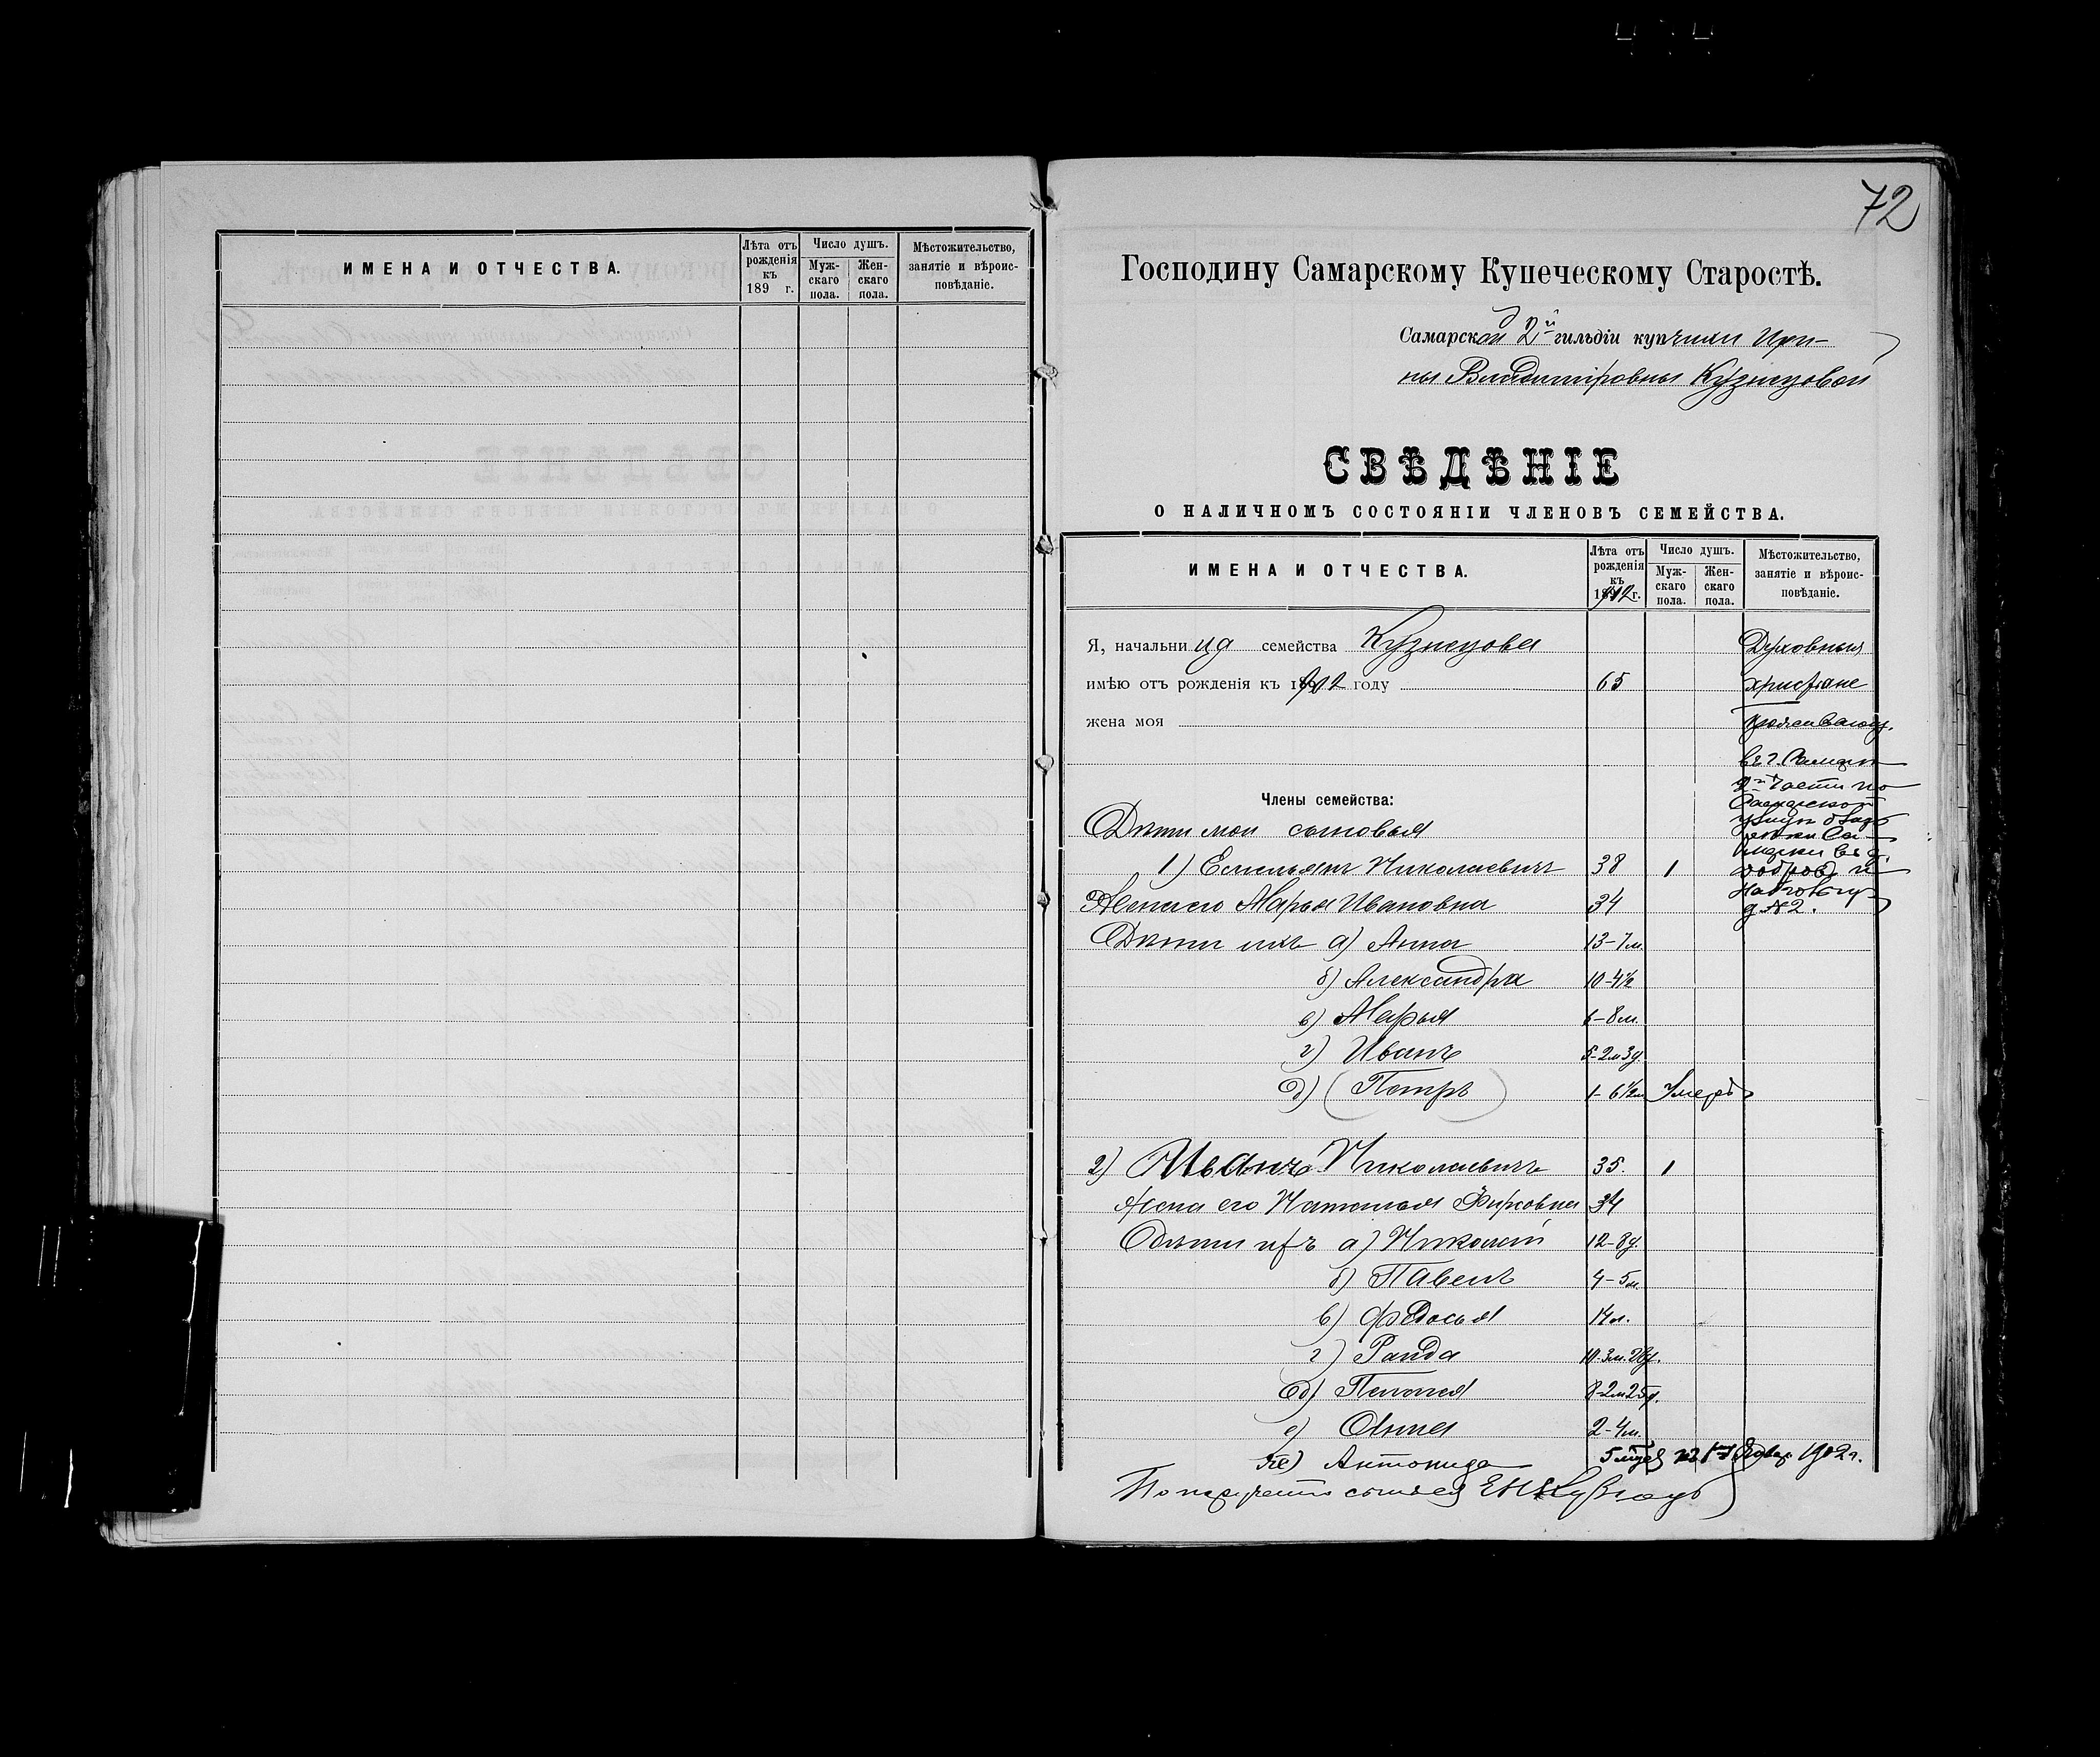 ИМЕНА И ОТЧЕСТВА.
Лѣта отъ рожденія къ 189 г.
Число душъ.
Муж-скаго пола.
Жен-скаго пола.
Мѣстожительство, занятіе и вѣроис-повѣданіе.
72
Господину Самарскому Купеческому Старостѣ.
Самарской 2й гильдіи купчихи Ири-
ны Владиміровны Кузнецовой
СВѢДѢНІЕ
О НАЛИЧНОМЪ СОСТОЯНІИ ЧЛЕНОВЪ СЕМЕЙСТВА.
ИМЕНА И ОТЧЕСТВА.
Лѣта отъ рожденія къ 1902 г.
Число душъ.
Муж-скаго пола.
Жен-скаго пола.
Мѣстожительство, занятіе и вѣроис-повѣданіе.
Я, начальница семейства Кузнецова
Духовныя
имѣю отъ рожденія къ 1902 году 65
христіане
жена моя
въ г. Самарѣ
2й части по
Самарской
улицѣ
д № 2.
Члены семейства:
Дѣти мои сыновья
1) Емельянъ Николаевичъ 38 1
Жена его Марья Ивановна 34
Дѣти ихъ а) Анна 13-7 м.
б) Александра 10-4½
в) Марья 6-8 м.
г) Иванъ 5-2 м 3 д.
д) (Петръ) 1-6½ м Умеръ
2) Иванъ Николаевичъ 35. 1
Жена его Наталья Фирсовна 34
Дѣти ихъ а) Николай 12-8 д.
б) Павелъ 4-5 м.
в) Федосья 14 л.
г) Раида 10-3 м. 28 д.
д) Пелагея 8-2 м 25 д.
е) Анна 2-4 м.
ж) Антонида 5 1902 г.